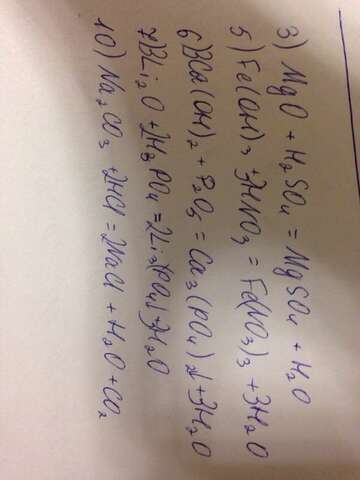 3) MgO + H₂SO₄ = MgSO₄ + H₂O
5) Fe(OH)₃ + 3HNO₃ = Fe(NO₃)₃ + 3H₂O
6) 3Ca(OH)₂ + P₂O₅ = Ca₃(PO₄)₂↓ + 3H₂O
7) 3Li₂O + 2H₃PO₄ = 2Li₃(PO₄)↓ + 3H₂O
10) Na₂CO₃ + 2HCl = 2NaCl + H₂O + CO₂